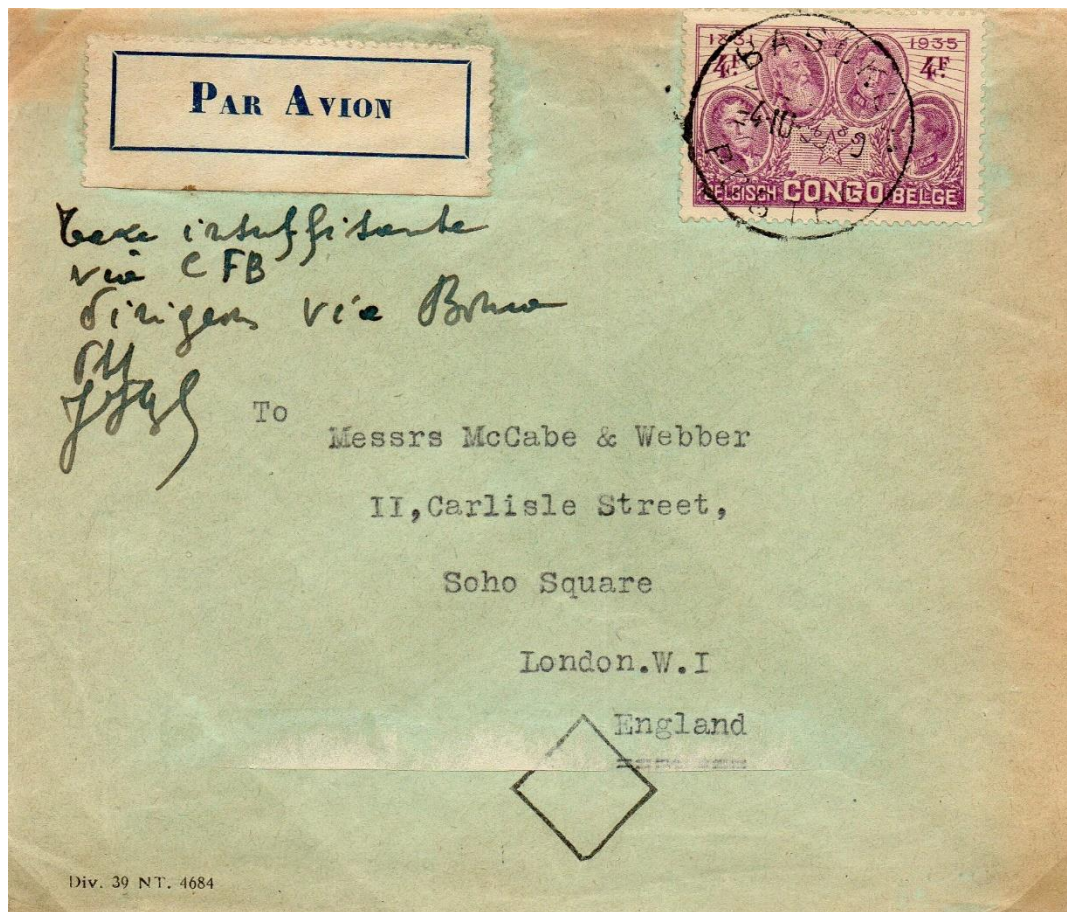 PAR AVION
1881 1935
4F. 4F.
BELGISCH CONGO BELGE
taxe insuffisante
via CFB
dirigeons via Boma
To
Messrs McCabe & Webber
II,Carlisle Street,
Soho Square
London.W.I
England
Div. 39 NT. 4684